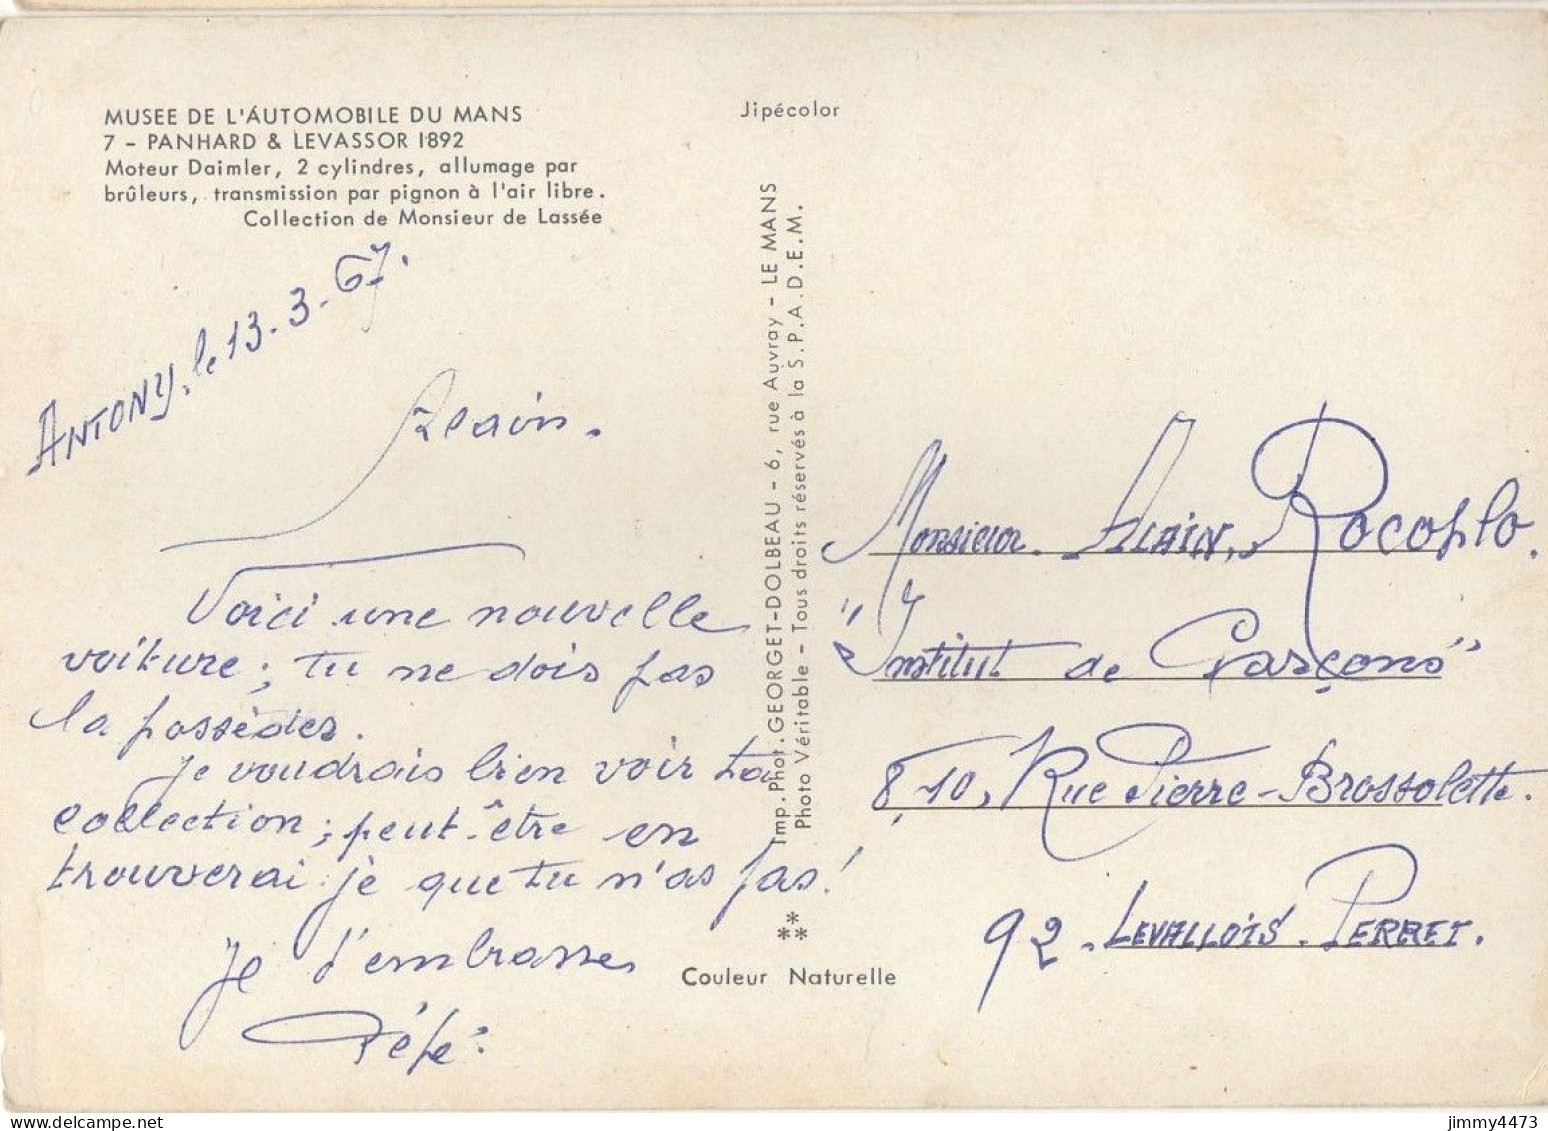 MUSEE DE L'ÁUTOMOBILE DU MANS
7 - PANHARD & LEVASSOR 1892
Moteur Daimler, 2 cylindres, allumage par
brûleurs, transmission par pignon à l'air libre.
Collection de Monsieur de Lassée
ANTONY, le 13-3-67.
Alain.
Voici une nouvelle
voiture; tu ne dois pas
la possèder.
Je voudrais bien voir ta
collection; peut-être en
trouverai-je que tu n'as pas!
Je t'embrasse
Pépé.
Jipécolor
Imp. Phot. GEORGET-DOLBEAU - 6, rue Auvray - LE MANS
Photo Véritable - Tous droits réservés à la S.P.A.D.E.M.
Couleur Naturelle
Monsieur Alain, Rocoplo.
"Institut de Garçons"
8,10, Rue Pierre-Brossolette.
92 - LEVALLOIS-PERRET.
jimmy4473